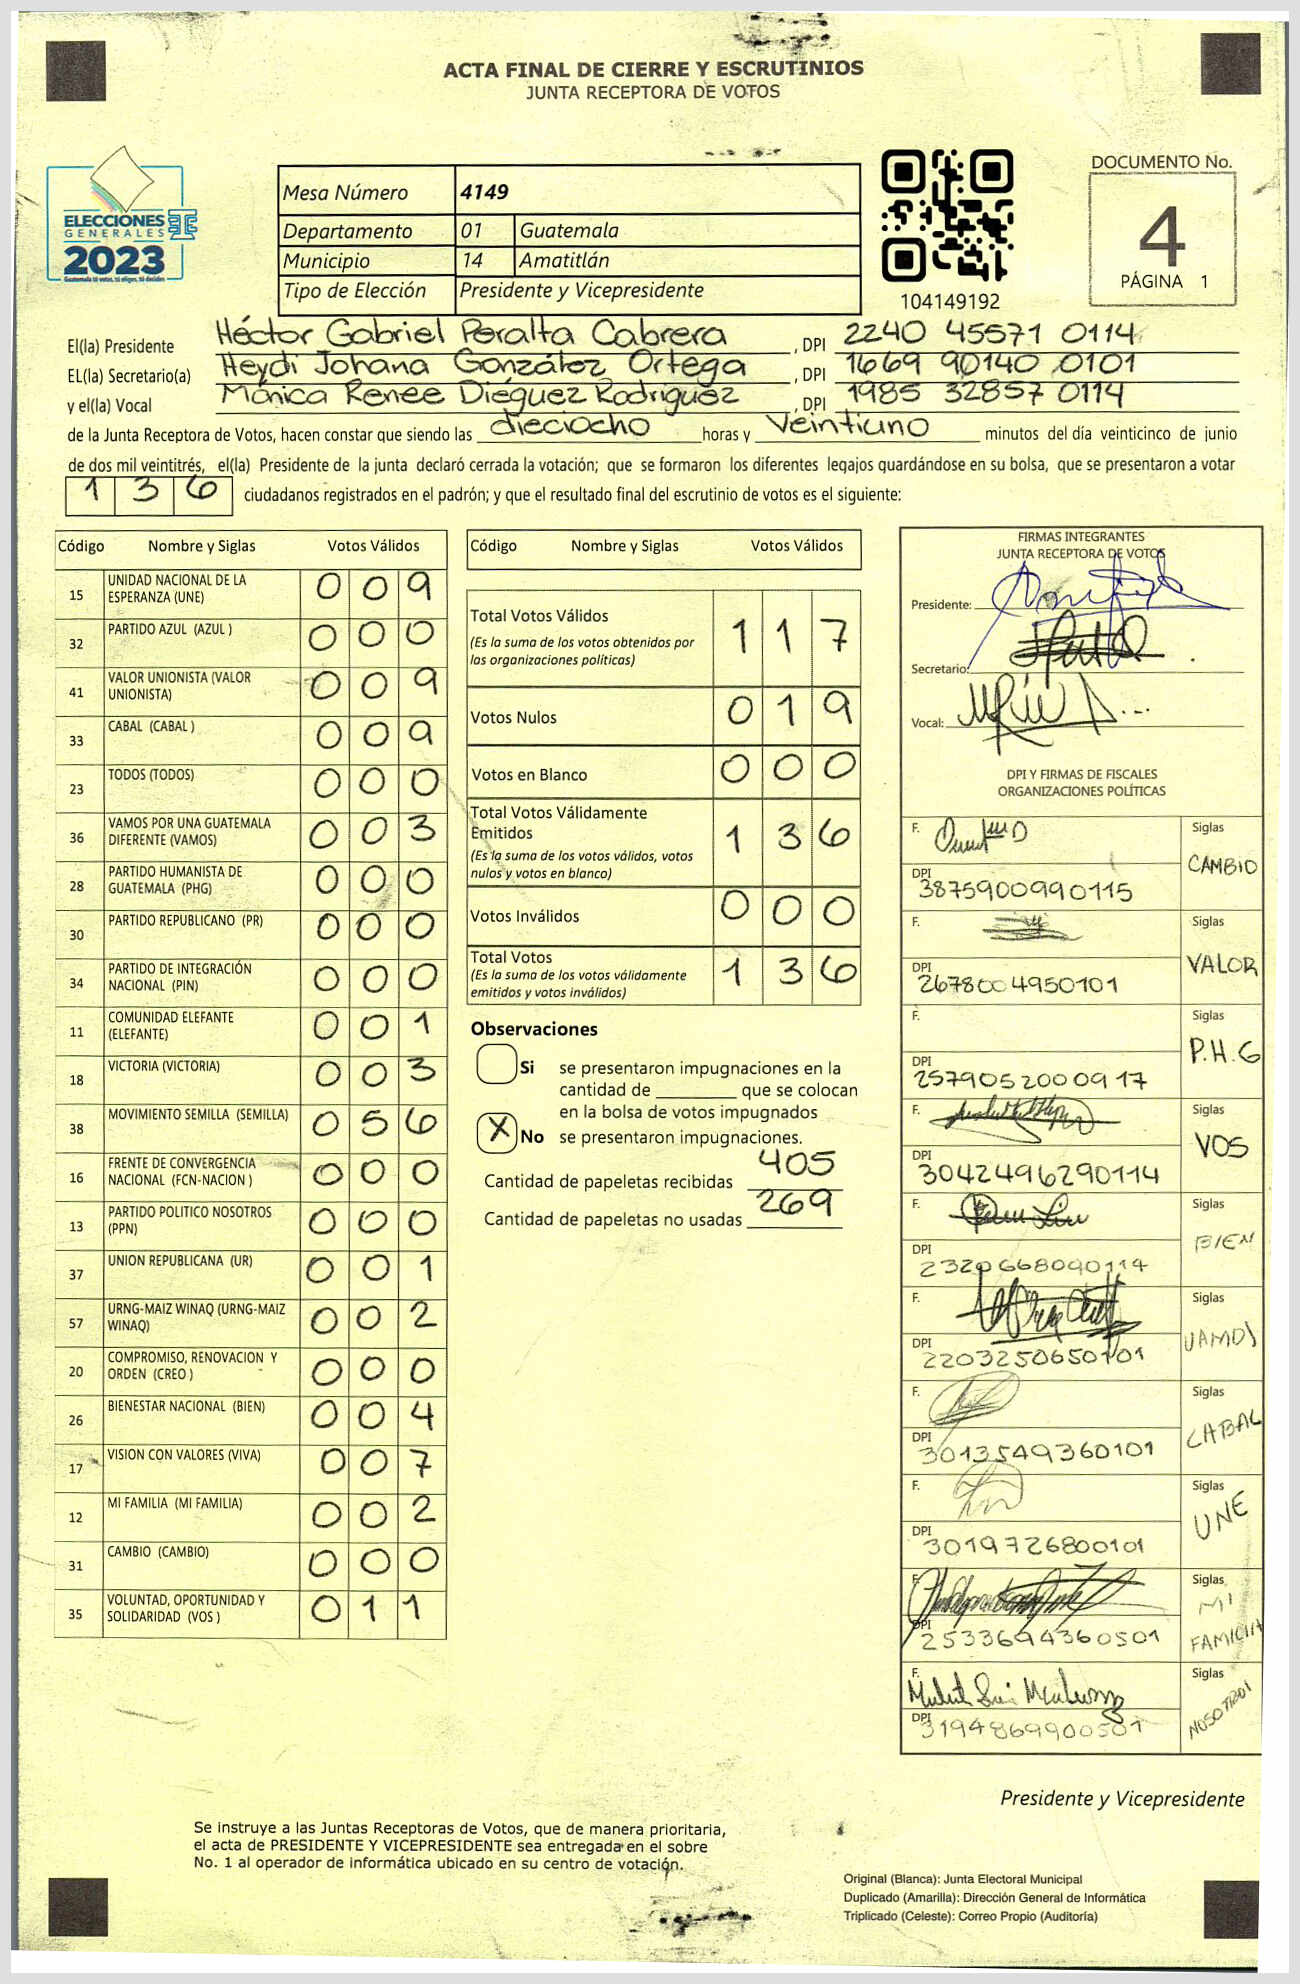 ACTA FINAL DE CIERRE Y ESCRUTINIOS
JUNTA RECEPTORA DE VOTOS
ELECCIONES
GENERALES
2023
Guatemala tú votas, tú eliges, tú decides
Mesa Número 4149
Departamento 01 Guatemala
Municipio 14 Amatitlán
Tipo de Elección Presidente y Vicepresidente
104149192
DOCUMENTO No.
4
PÁGINA 1
El(la) Presidente Héctor Gabriel Peralta Cabrera , DPI 2240 45571 0114
EL(la) Secretario(a) Heydi Johana González Ortega , DPI 1669 90140 0101
y el(la) Vocal Mónica Renee Diéguez Rodríguez , DPI 1985 32857 0114
de la Junta Receptora de Votos, hacen constar que siendo las dieciocho horas y veintiuno minutos del día veinticinco de junio
de dos mil veintitrés, el(la) Presidente de la junta declaró cerrada la votación; que se formaron los diferentes legajos guardándose en su bolsa, que se presentaron a votar
136 ciudadanos registrados en el padrón; y que el resultado final del escrutinio de votos es el siguiente:
Código Nombre y Siglas Votos Válidos
15 UNIDAD NACIONAL DE LA ESPERANZA (UNE) 009
32 PARTIDO AZUL (AZUL ) 000
41 VALOR UNIONISTA (VALOR UNIONISTA) 009
33 CABAL (CABAL ) 009
23 TODOS (TODOS) 000
36 VAMOS POR UNA GUATEMALA DIFERENTE (VAMOS) 003
28 PARTIDO HUMANISTA DE GUATEMALA (PHG) 000
30 PARTIDO REPUBLICANO (PR) 000
34 PARTIDO DE INTEGRACIÓN NACIONAL (PIN) 000
11 COMUNIDAD ELEFANTE (ELEFANTE) 001
18 VICTORIA (VICTORIA) 003
38 MOVIMIENTO SEMILLA (SEMILLA) 056
16 FRENTE DE CONVERGENCIA NACIONAL (FCN-NACION ) 000
13 PARTIDO POLITICO NOSOTROS (PPN) 000
37 UNION REPUBLICANA (UR) 001
57 URNG-MAIZ WINAQ (URNG-MAIZ WINAQ) 002
20 COMPROMISO, RENOVACION Y ORDEN (CREO ) 000
26 BIENESTAR NACIONAL (BIEN) 004
17 VISION CON VALORES (VIVA) 007
12 MI FAMILIA (MI FAMILIA) 002
31 CAMBIO (CAMBIO) 000
35 VOLUNTAD, OPORTUNIDAD Y SOLIDARIDAD (VOS ) 011
Código Nombre y Siglas Votos Válidos
Total Votos Válidos 117
(Es la suma de los votos obtenidos por
las organizaciones políticas)
Votos Nulos 019
Votos en Blanco 000
Total Votos Válidamente
Emitidos 136
(Es la suma de los votos válidos, votos
nulos y votos en blanco)
Votos Inválidos 000
Total Votos 136
(Es la suma de los votos válidamente
emitidos y votos inválidos)
Observaciones
Si se presentaron impugnaciones en la
cantidad de ________ que se colocan
en la bolsa de votos impugnados
X No se presentaron impugnaciones.
Cantidad de papeletas recibidas 405
Cantidad de papeletas no usadas 269
FIRMAS INTEGRANTES
JUNTA RECEPTORA DE VOTOS
Presidente:
Secretario:
Vocal:
DPI Y FIRMAS DE FISCALES
ORGANIZACIONES POLÍTICAS
F. Siglas CAMBIO
DPI 3875900990115
F. Siglas VALOR
DPI 2678004950101
F. Siglas P.H.G
DPI 2579052000917
F. Siglas VOS
DPI 3042496290114
F. Siglas BIEN
DPI 2320668090114
F. Siglas VAMOS
DPI 2203250650101
F. Siglas CABAL
DPI 3013549360101
F. Siglas UNE
DPI 3019726800101
F. Siglas MI FAMILIA
DPI 2533694360501
F. Siglas NOSOTROS
DPI 3194869900501
Presidente y Vicepresidente
Se instruye a las Juntas Receptoras de Votos, que de manera prioritaria,
el acta de PRESIDENTE Y VICEPRESIDENTE sea entregada en el sobre
No. 1 al operador de informática ubicado en su centro de votación.
Original (Blanca): Junta Electoral Municipal
Duplicado (Amarilla): Dirección General de Informática
Triplicado (Celeste): Correo Propio (Auditoría)